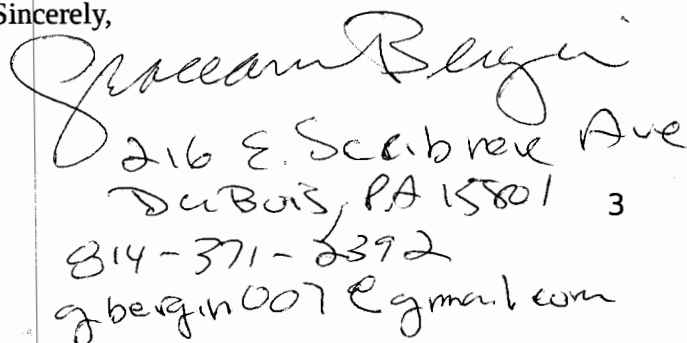 Sincerely,
Graceann Bergin
216 E. Scribner Ave
DuBois, PA 15801 3
814-371-2392
gbergin007@gmail.com